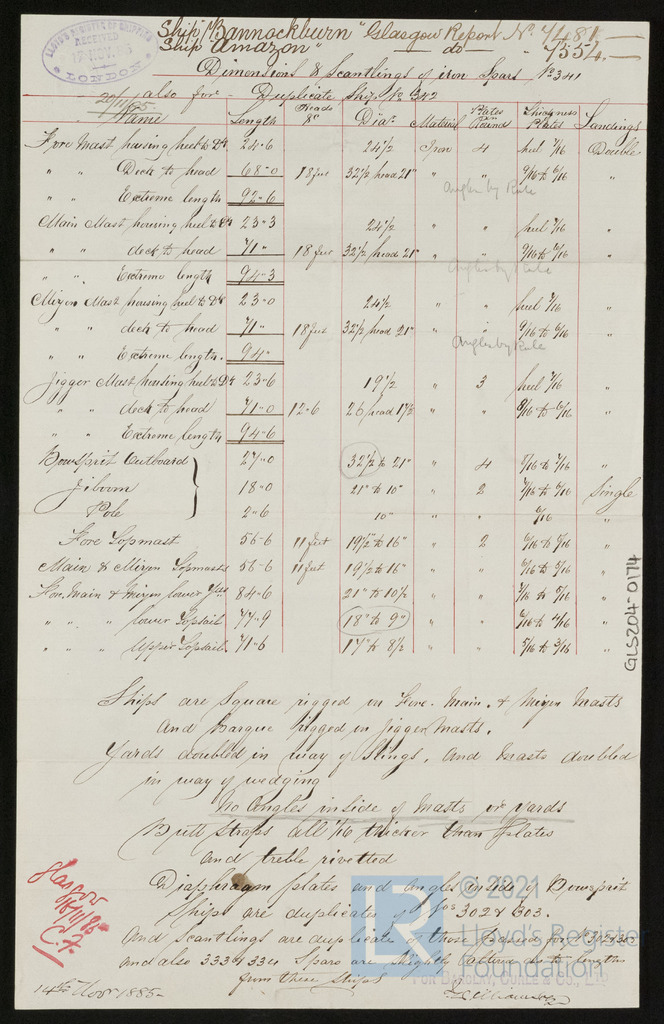 LLOYD'S REGISTER OF SHIPPING
RECEIVED
LONDON
Ship "Bannockburn" Glasgow Report No. 7481
Ship "Amazon" — do — " 7554
Dimensions & Scantlings of iron Spars No 341
also for Duplicate Ship No 342
20/11/85
Name Length Heads Dia: Material Plates Round Thickness Plates Landings
Fore Mast housing heel to Dk 24-6 24 1/2 Iron 4 heel 7/16 Double
" " Deck to head 68-0 18 feet 32 1/2 head 21" " " 9/16 to 6/16 "
Angles by Rule
" " Extreme length 92-6
Main Mast housing heel to Dk 23-3 24 1/2 " " heel 7/16 "
" " deck to head 71" 18 feet 32 1/2 head 21" " " 9/16 to 6/16 "
Angles by Rule
" " Extreme length 94-3
Mizen Mast housing heel to Dk 23-0 24 1/2 " " heel 7/16 "
" " deck to head 71" 18 feet 32 1/2 head 21" " " 9/16 to 6/16 "
Angles by Rule
" " Extreme length. 94"
Jigger Mast housing heel to Dk 23-6 19 1/2 " 3 heel 7/16 "
" " deck to head 71-0 12-6 26 head 17 1/2 " " 8/16 to 6/16 "
" " Extreme length 94-6
Bowsprit Outboard 27-0 32 1/2 to 21" " 4 "
Jiboom 18-0 21" to 10" " 2 Single
Pole 2-6 10" " 6/16 "
Fore Topmast 56-6 11 feet 19 1/2 to 16" " 2 "
Main & Mizen Topmasts 56-6 11 feet 19 1/2 to 16" " "
Fore, Main & Mizen lower Yds 84-6 21" to 10 1/2 " "
" " " lower Topsail 77-9 18" to 9" " "
" " " Upper Topsail 71-6 17" to 8 1/2 " " 5/16 to 3/16 "
Ships are Square rigged on Fore. Main. & Mizen Masts
and Barque rigged on Jigger Masts.
Yards doubled in way of Slings, and Masts doubled
in way of wedging
No Angles inside of Masts or Yards
Butt Straps all 1/16 thicker than Plates
and treble rivetted
Diaphragm plates and angles inside of Bowsprit
Ships are duplicates of Nos 302 & 303.
and Scantlings are duplicate of those passed for
and also 333 & 334 Spars are slightly
from these Ships
FOR BARCLAY, CURLE & CO., LTD
14th Novr 1885-
Glasgow
C.F.
GLS204-0174
LR
© 2021
Lloyd's Register
Foundation